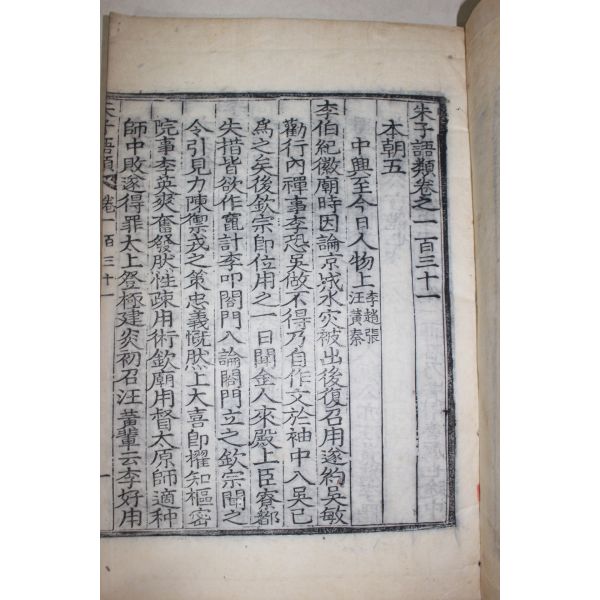 朱子語類卷之一百三十一
本朝五
中興至今日人物上 李趙張汪黃秦
李伯紀徽廟時因論京城水灾被出後復召用遂約吳敏
勸行內禪事李恐吳做不得乃自作文於袖中入吳已
爲之矣後欽宗即位用之一日聞金人來殿上臣寮都
失措皆欲作竄計李叩閤門入論閤門立之欽宗聞之
令引見力陳禦戎之策忠義慨然上大喜即擢知樞密
院事李英爽奮發然性疎用術欽廟用督太原師適种
師中敗遂得罪太上登極建炎初召汪黃輩云李好用
朱子語類 卷一百三十一 一